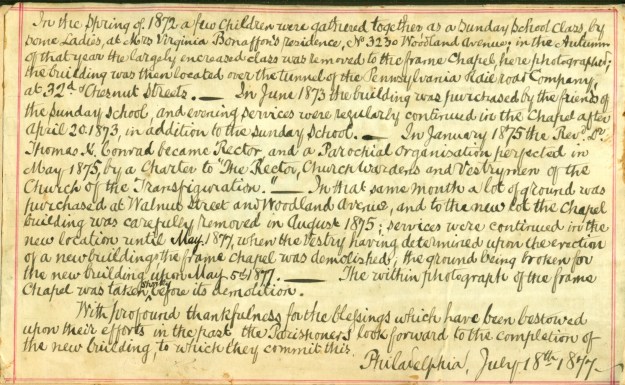 In the Spring of 1872 a few Children were gathered together as a Sunday School class, by
some Ladies, at Mrs Virginia Bonaffon's residence, No 3230 Woodland Avenue; in the Autumn
of that year the largely increased class was removed to the frame Chapel, here photographed;
the building was then located over the tunnel of the Pennsylvania Railroad Company,
at 32d & Chesnut Streets. — In June 1873 the building was purchased by the friends of
the Sunday School, and evening services were regularly continued in the Chapel after
April 20 1873, in addition to the Sunday School. — In January 1875 the Revd. Dr.
Thomas K. Conrad became Rector and a Parochial Organisation perfected in
May 1875, by a Charter to "The Rector, Church Wardens and Vestrymen of the
Church of the Transfiguration." — In that same month a lot of ground was
purchased at Walnut Street and Woodland Avenue, and to the new lot the Chapel
building was carefully removed in August 1875; services were continued in the
new location until May 1877, when the Vestry having determined upon the erection
of a new building, the frame chapel was demolished, the ground being broken for
the new building upon May 5th 1877. — The within photograph of the frame
Chapel was taken shortly before its demolition.
With profound thankfulness for the blessings which have been bestowed
upon their efforts in the past the Parishoners look forward to the completion of
the new building to which they commit this.
Philadelphia, July 18th 1877.